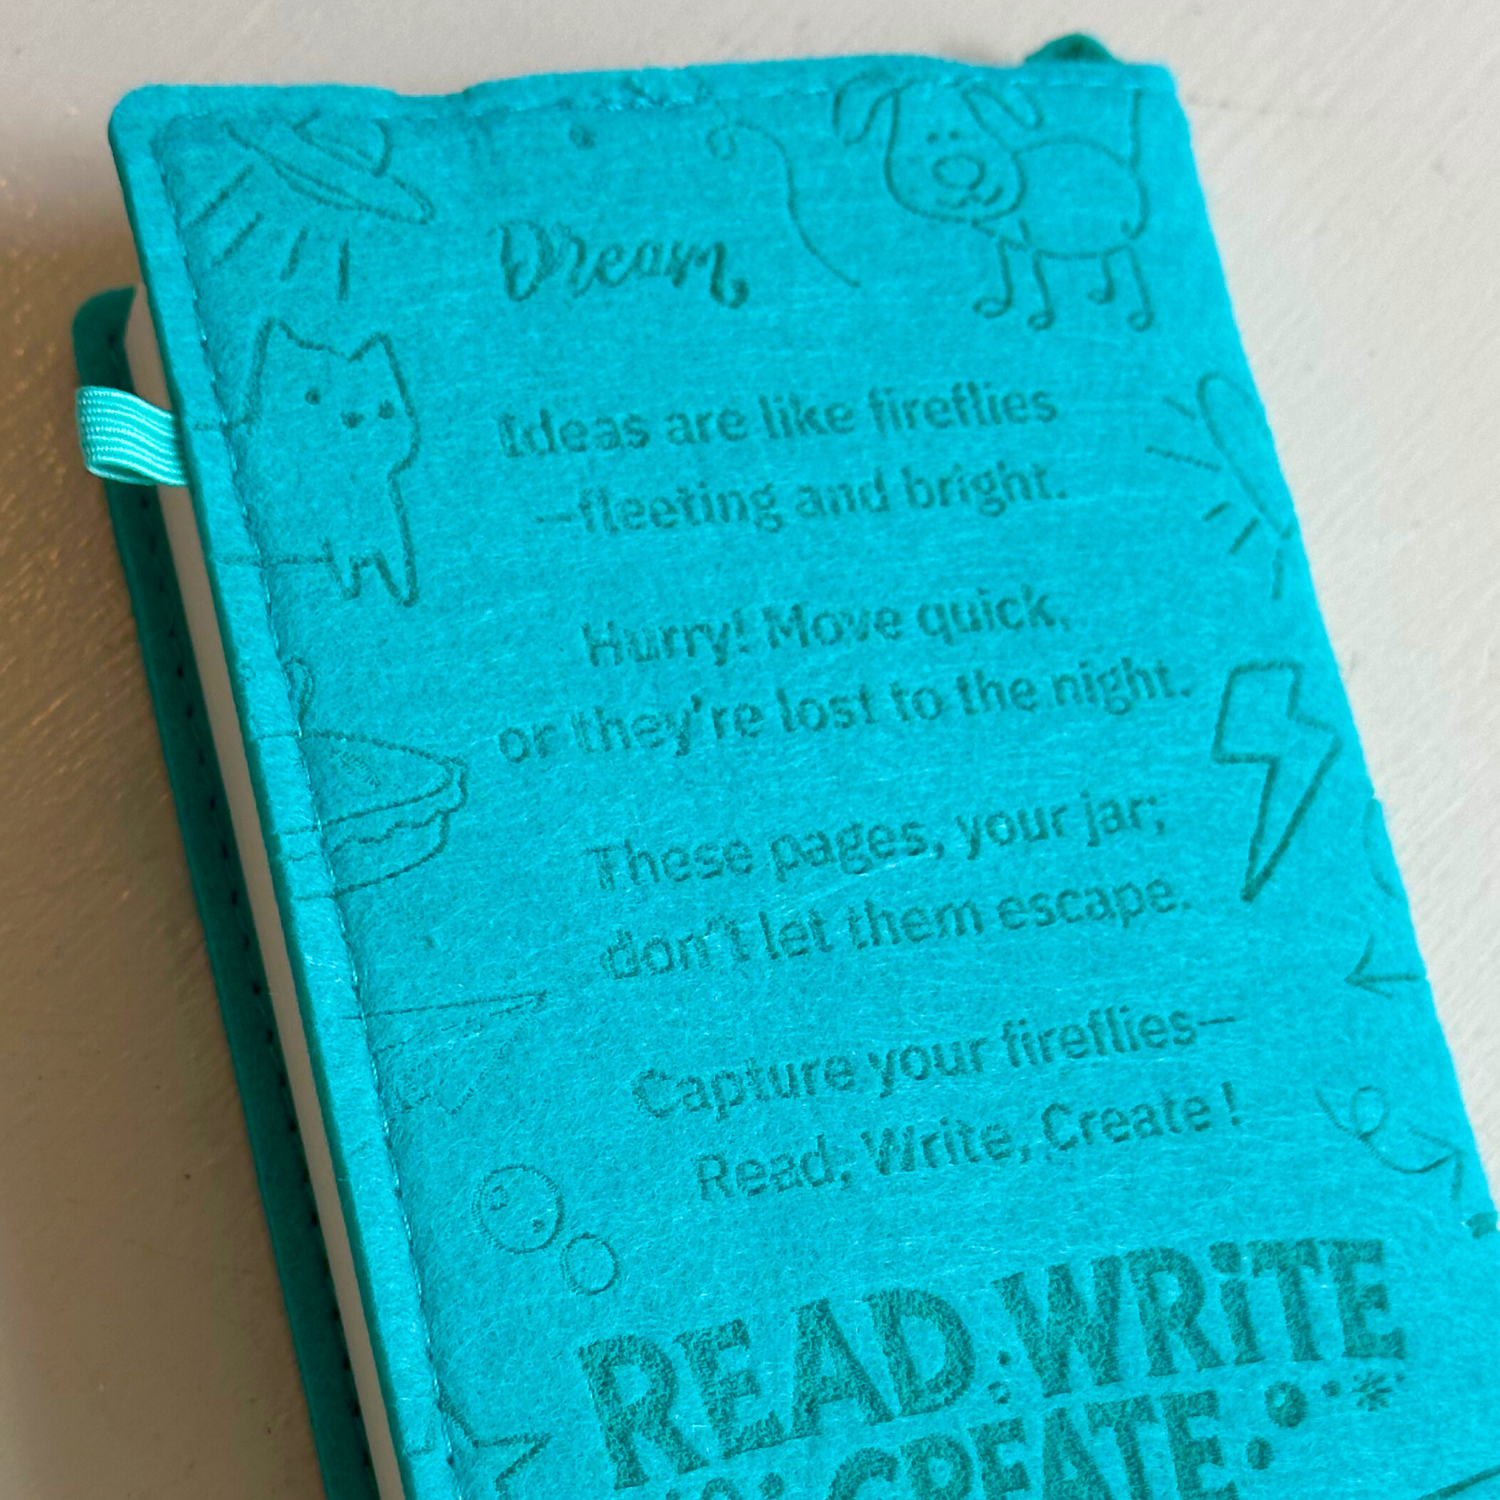 Dream
Ideas are like fireflies
—fleeting and bright.
Hurry! Move quick,
or they're lost to the night.
These pages, your jar;
don't let them escape.
Capture your fireflies—
Read, Write, Create !
READ WRiTE
CREATE